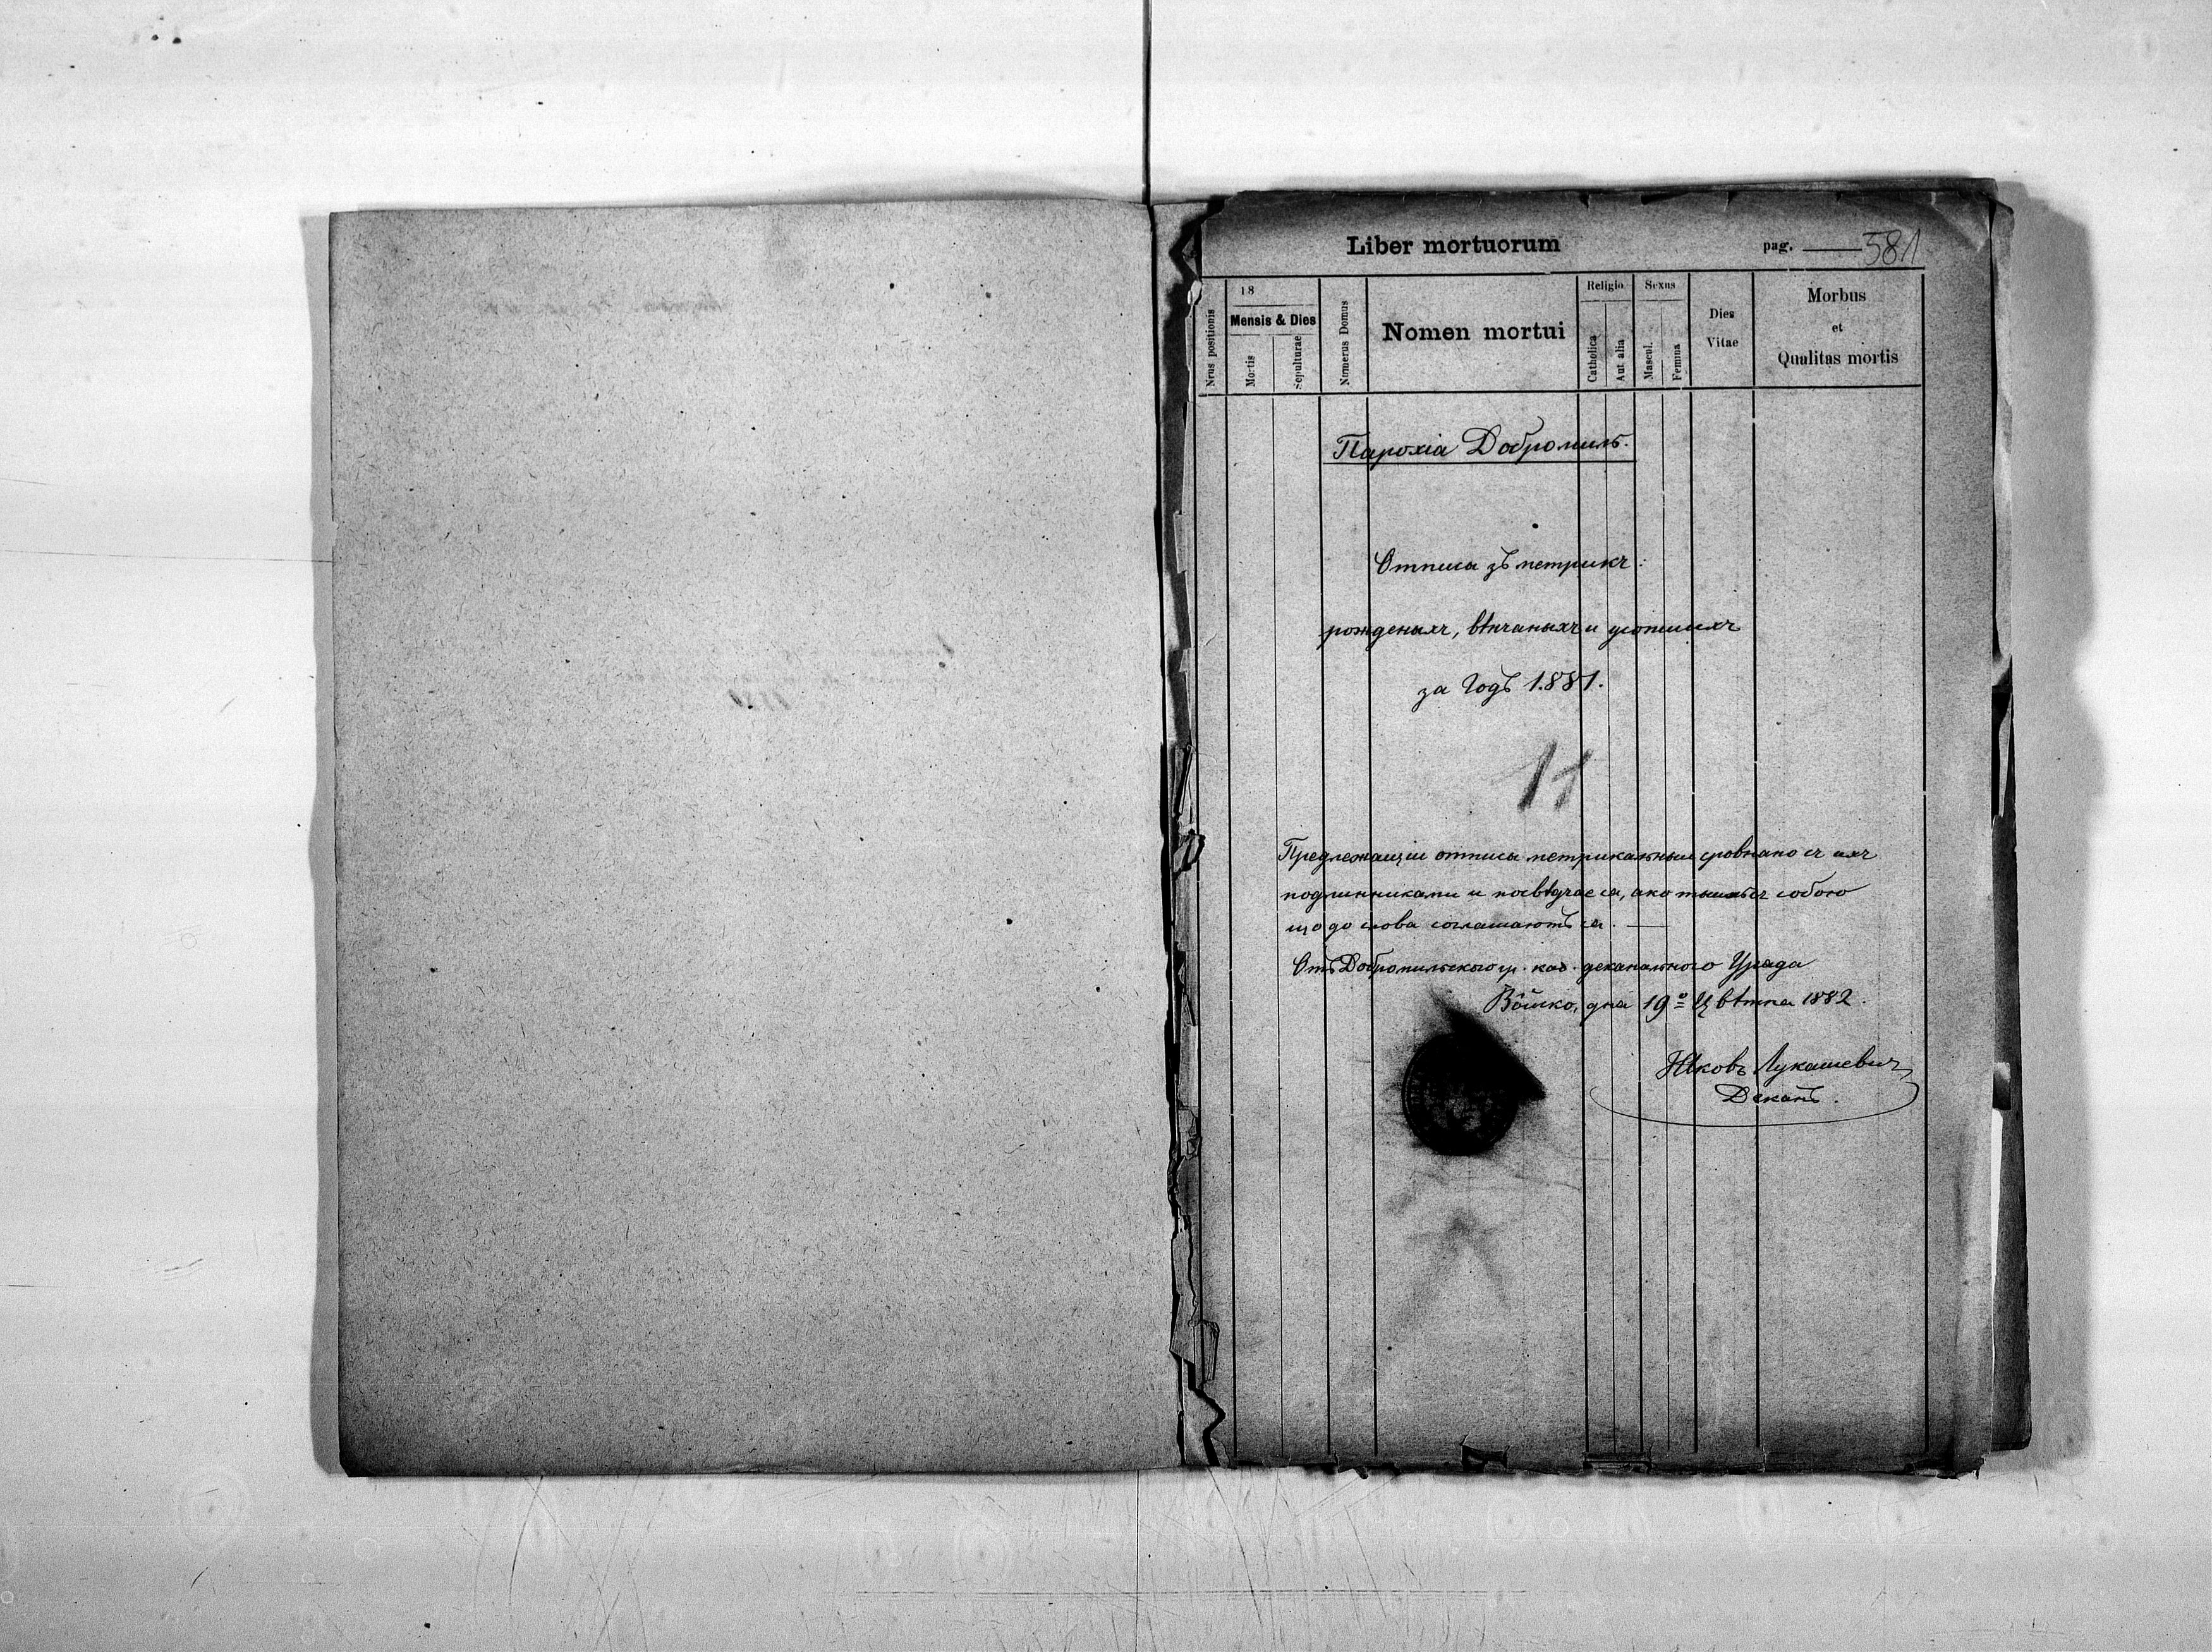 Liber mortuorum pag. 581
Nrus positionis
18
Mensis & Dies
Mortis
Sepulturae
Numerus Domus
Nomen mortui
Religio
Catholica
Aut alia
Sexus
Mascul.
Femina
Dies
Vitae
Morbus
et
Qualitas mortis
Парохіа Добромиль.
Отписа зъ метрикъ:
рожденыхъ, вѣнчаныхъ и усопшихъ
за Годъ 1881.
Предлежащіи отписы метрикальныи сровнано съ ихъ
подлинниками и посвѣдчае ся, ако собою
що до слова соглашаютъ ся.
Отъ Добромильского гр. каѳ. деканального Уряда
Войско, дня 19º Цвѣтня 1882.
Яковъ Лукашевичъ
Деканъ.